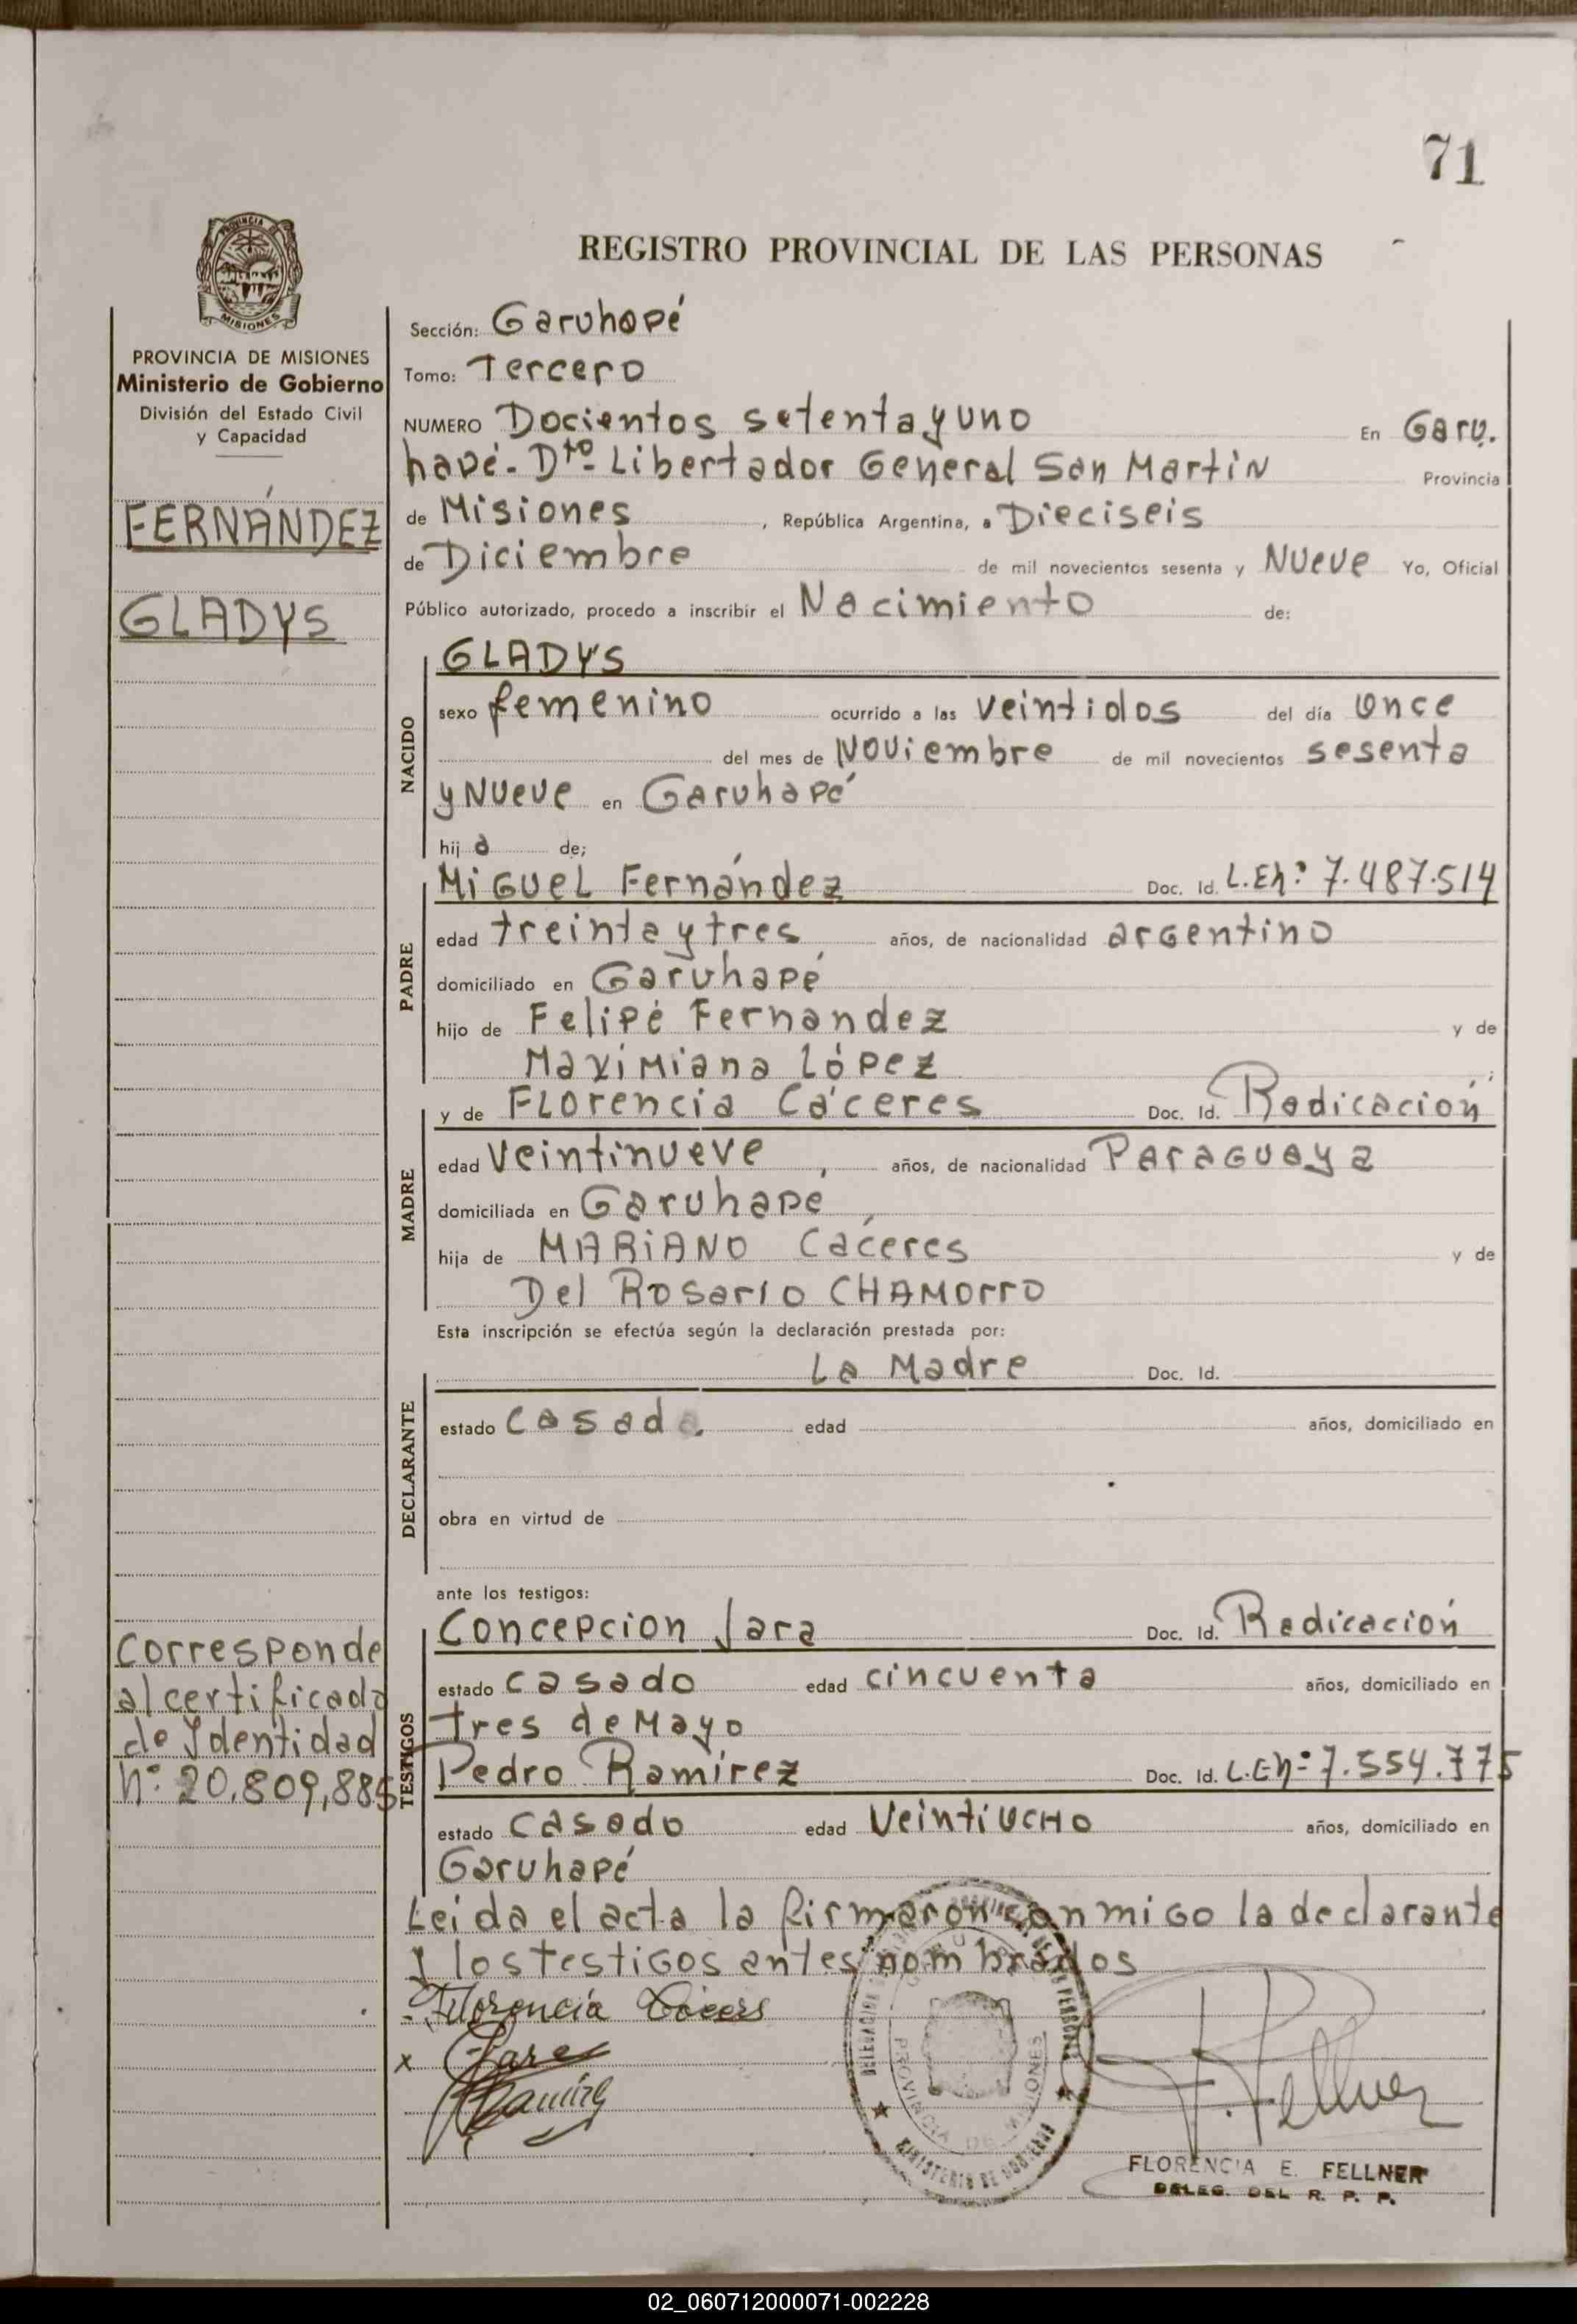 71
REGISTRO PROVINCIAL DE LAS PERSONAS
PROVINCIA DE MISIONES
Ministerio de Gobierno
División del Estado Civil
y Capacidad
FERNÁNDEZ
GLADYS
Corresponde
al certificado
de Identidad
nº 20.809,885
Sección: Garuhapé
Tomo: Tercero
NUMERO Docientos setenta y uno En Garu.
hapé- Dto- Libertador General San Martin Provincia
de Misiones, República Argentina, a Dieciseis
de Diciembre de mil novecientos sesenta y Nueve Yo, Oficial
Público autorizado, procedo a inscribir el Nacimiento de:
NACIDO
GLADYS
sexo femenino ocurrido a las veintidos del día once
del mes de Noviembre de mil novecientos sesenta
y Nueve en Garuhapé
hija de;
PADRE
Miguel Fernández Doc. Id. L.En: 7.487.514
edad treinta y tres años, de nacionalidad argentino
domiciliado en Garuhapé
hijo de Felipé Fernandez y de
Maximiana López;
MADRE
y de Florencia Cáceres Doc. Id. Radicación
edad Veintinueve, años, de nacionalidad Paraguaya
domiciliada en Garuhapé
hija de MARIANO Cáceres y de
Del Rosario CHAMORRO
Esta inscripción se efectúa según la declaración prestada por:
DECLARANTE
La Madre Doc. Id.
estado Casada edad años, domiciliado en
obra en virtud de
ante los testigos:
TESTIGOS
Concepcion Jara Doc. Id. Radicación
estado casado edad cincuenta años, domiciliado en
tres de Mayo
Pedro Ramírez Doc. Id. L.En: 7.554.775
estado casado edad Veintiucho años, domiciliado en
Garuhapé
Leida el acta la firmaron conmigo la declarante
y los testigos antes nombrados
Florencia
x Jara
Ramírez
F. Fellner
PROVINCIA DE MISIONES
MINISTERIO DE GOBIERNO
FLORENCIA E. FELLNER
DELEG. DEL R. P. P.
02_060712000071-002228